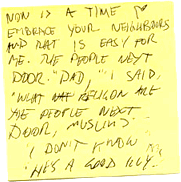 NOW IS A TIME TO
EMBRACE YOUR NEIGHBOURS
AND THAT IS EASY FOR
ME. THE PEOPLE NEXT
DOOR. "DAD," I SAID,
"WHAT RELIGION ARE
THE PEOPLE NEXT
DOOR, MUSLIMS?"
"I DON'T KNOW
HE'S A GOOD GUY."